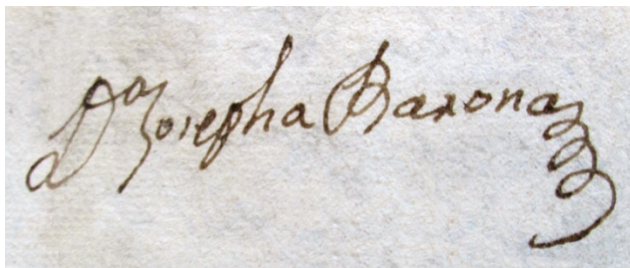 Dª Josepha Barona